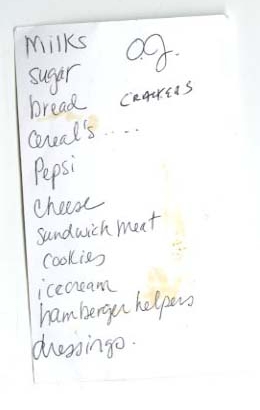 Milks O.J.
sugar
bread CRACKERS
Cereal's ....
Pepsi
cheese
sandwich meat
cookies
icecream
hamberger helpers
dressings.